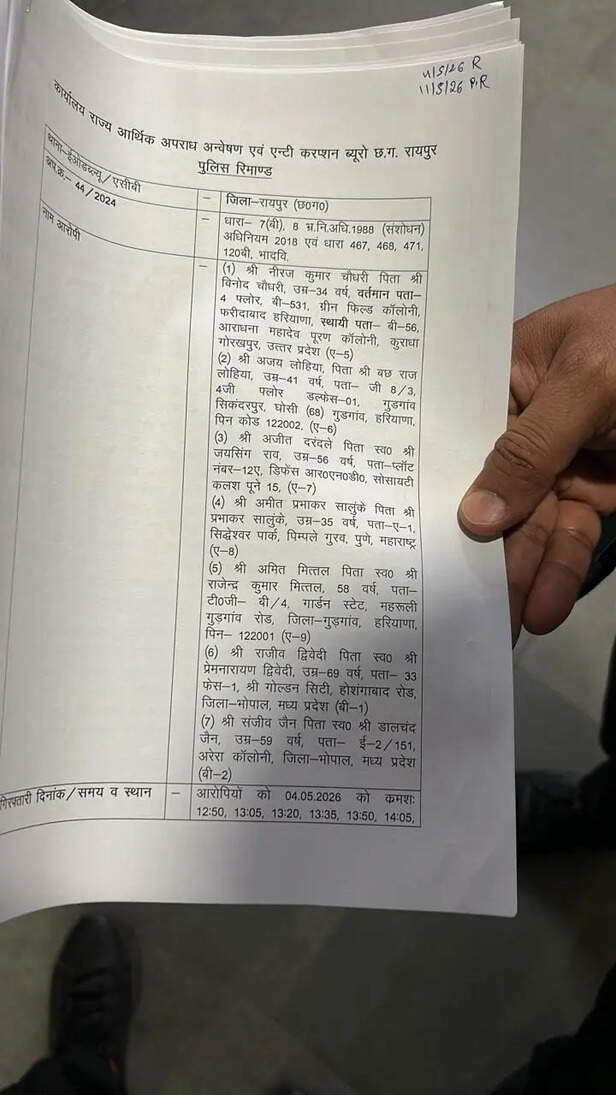 4/5/26 R
11/5/26 P.R
कार्यालय राज्य आर्थिक अपराध अन्वेषण एवं एन्टी करप्शन ब्यूरो छ.ग. रायपुर
पुलिस रिमाण्ड
थाना–ईओडब्ल्यू/एसीबी – जिला–रायपुर (छ0ग0)
अप.क्र.– 44/2024 – धारा– 7(बी), 8 भ्र.नि.अधि.1988 (संशोधन)
अधिनियम 2018 एवं धारा 467, 468, 471,
120बी, भादवि.
नाम आरोपी – (1) श्री नीरज कुमार चौधरी पिता श्री
विनोद चौधरी, उम्र–34 वर्ष, वर्तमान पता–
4 फ्लोर, बी–531, ग्रीन फिल्ड कॉलोनी,
फरीदाबाद हरियाणा, स्थायी पता– बी–56,
आराधना महादेव पूरण कॉलोनी, कुराधा
गोरखपुर, उत्तर प्रदेश (ए–5)
(2) श्री अजय लोहिया, पिता श्री बछ राज
लोहिया, उम्र–41 वर्ष, पता– जी 8/3,
4जी फ्लोर डल्फेस–01, गुडगांव
सिकंदरपुर, घोसी (68) गुडगांव, हरियाणा,
पिन कोड 122002, (ए–6)
(3) श्री अजीत दरंदले पिता स्व0 श्री
जयसिंग राव, उम्र–56 वर्ष, पता–प्लॉट
नंबर–12ए, डिफेंस आर0एन0डी0, सोसायटी
कलश पूने 15, (ए–7)
(4) श्री अमीत प्रभाकर सालुंके पिता श्री
प्रभाकर सालुंके, उम्र–35 वर्ष, पता–ए–1,
सिद्धेश्वर पार्क, पिम्पले गुरव, पुणे, महाराष्ट्र
(ए–8)
(5) श्री अमित मित्तल पिता स्व0 श्री
राजेन्द्र कुमार मित्तल, 58 वर्ष, पता–
टी0जी– बी/4, गार्डन स्टेट, महरूली
गुड़गांव रोड, जिला–गुड़गांव, हरियाणा,
पिन– 122001 (ए–9)
(6) श्री राजीव द्विवेदी पिता स्व0 श्री
प्रेमनारायण द्विवेदी, उम्र–69 वर्ष, पता– 33
फेस–1, श्री गोल्डन सिटी, होशंगाबाद रोड,
जिला–भोपाल, मध्य प्रदेश (बी–1)
(7) श्री संजीव जैन पिता स्व0 श्री डालचंद
जैन, उम्र–59 वर्ष, पता– ई–2/151,
अरेरा कॉलोनी, जिला–भोपाल, मध्य प्रदेश
(बी–2)
गिरफ्तारी दिनांक/समय व स्थान – आरोपियों को 04.05.2026 को क्रमशः
12:50, 13:05, 13:20, 13:35, 13:50, 14:05,